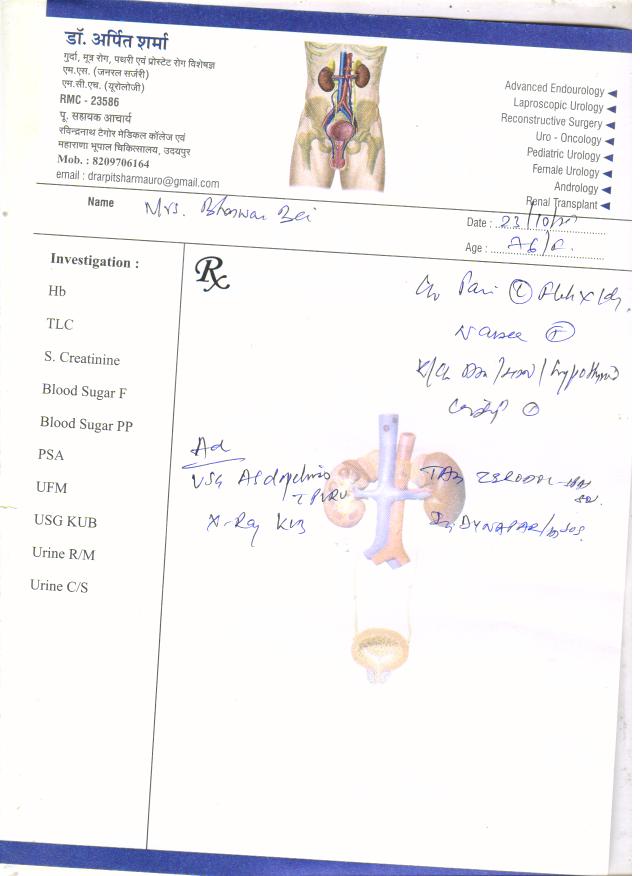 डॉ. अर्पित शर्मा
गुर्दा, मूत्र रोग, पथरी एवं प्रोस्टेट रोग विशेषज्ञ
एम.एस. (जनरल सर्जरी)
एम.सी.एच. (यूरोलोजी)
RMC - 23586
पू. सहायक आचार्य
रविन्द्रनाथ टेगोर मेडिकल कॉलेज एवं
महाराणा भूपाल चिकित्सालय, उदयपुर
Mob. : 8209706164
email : drarpitsharmauro@gmail.com
Advanced Endourology
Laproscopic Urology
Reconstructive Surgery
Uro - Oncology
Pediatric Urology
Female Urology
Andrology
Renal Transplant
Name Mrs. Bai
Date : 23/10/
Age :
Investigation :
Hb
TLC
S. Creatinine
Blood Sugar F
Blood Sugar PP
PSA
UFM
USG KUB
Urine R/M
Urine C/S
Rx
Pain
Nausea
hypothyroid
Ad
USG
PVRU
X-Ray KUB
TAB ZERODOL
DYNAPAR SOS